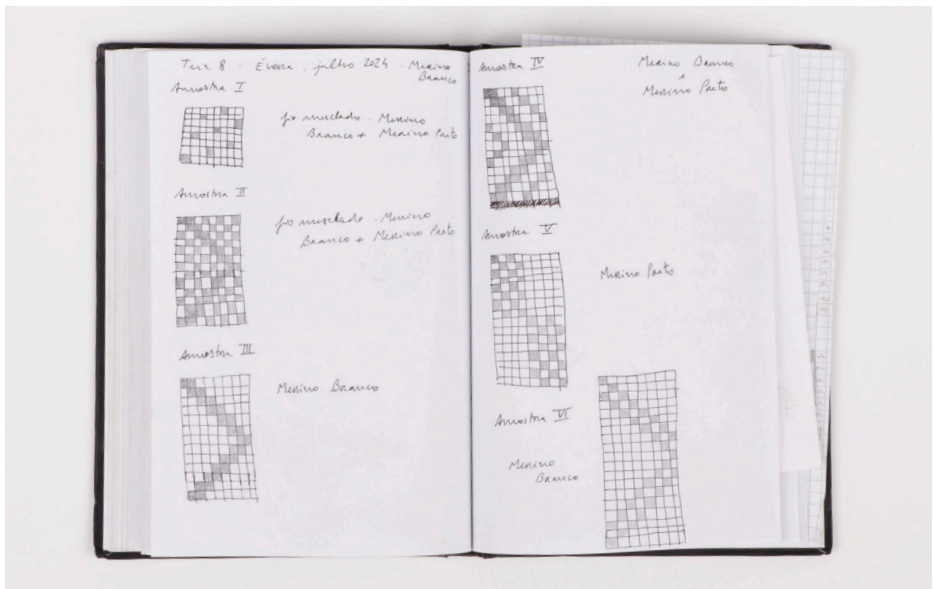 Teia 8 - Évora, julho 2024 - Merino
Branco
Amostra I
fio mesclado - Merino
Branco + Merino Preto
Amostra II
fio mesclado - Merino
Branco + Merino Preto
Amostra III
Merino Branco
Amostra IV
Merino Branco
e
Merino Preto
Amostra V
Merino Preto
Amostra VI
Merino
Branco